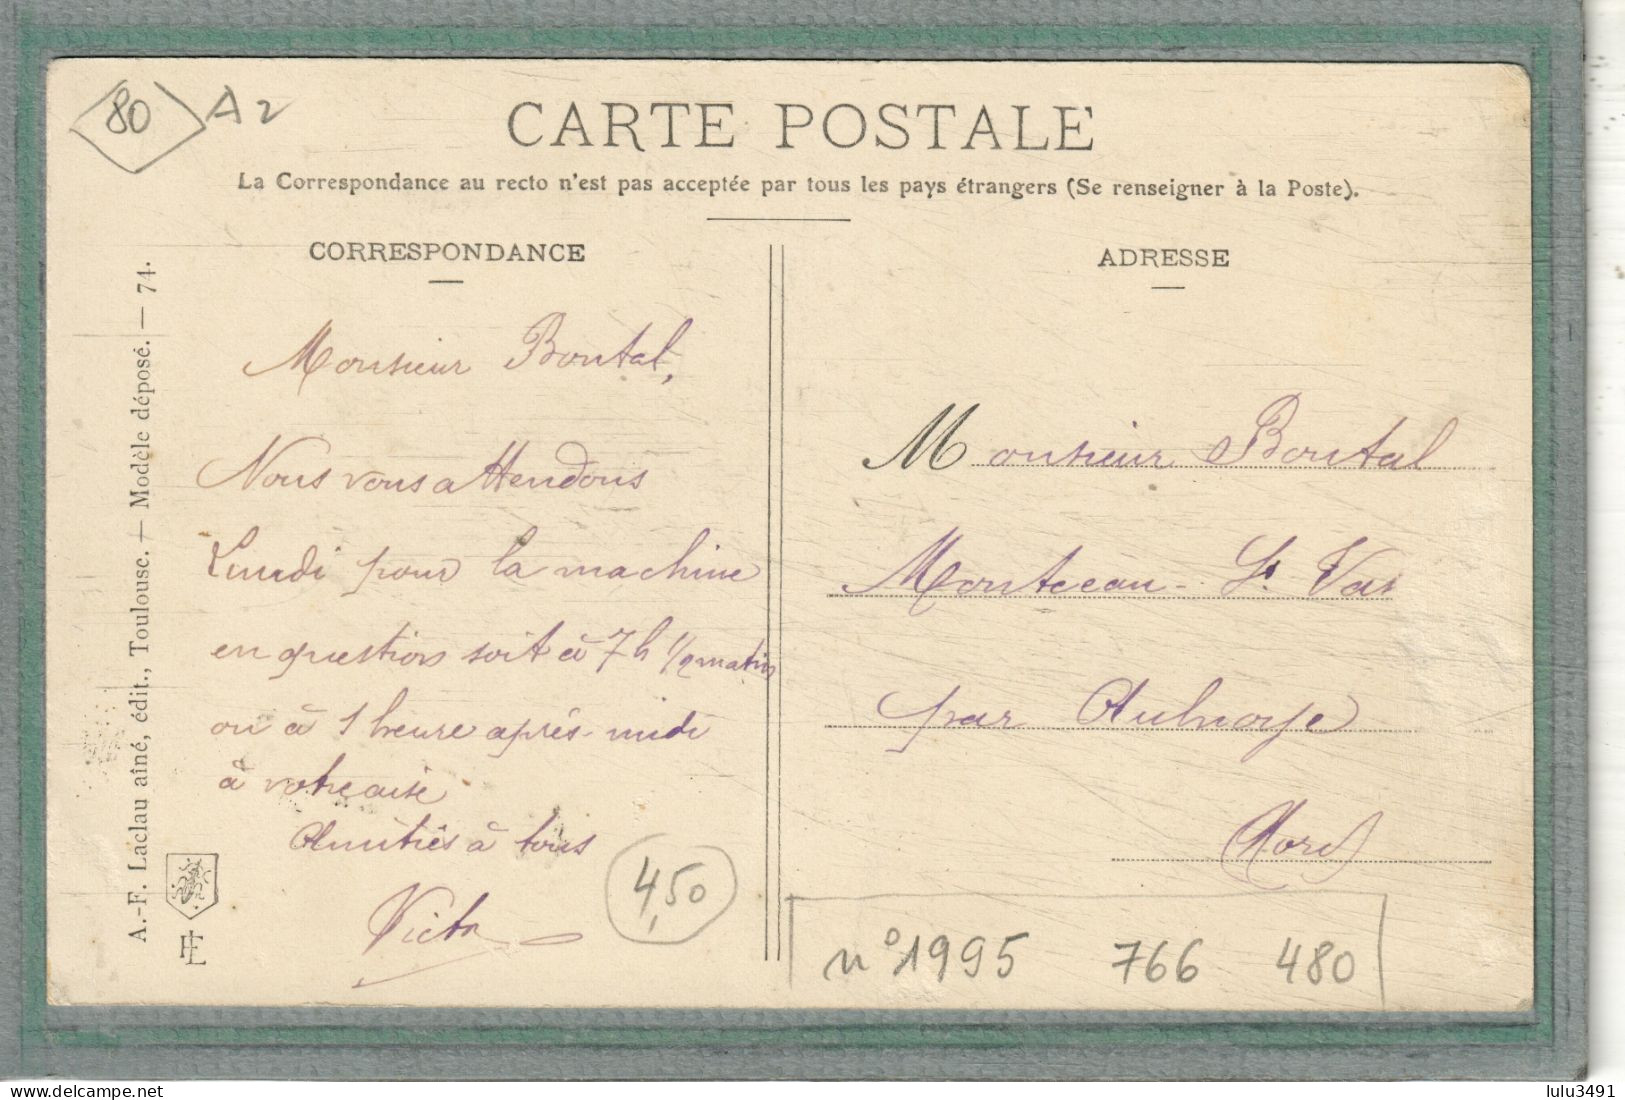 80 A2
CARTE POSTALE
La Correspondance au recto n'est pas acceptée par tous les pays étrangers (Se renseigner à la Poste).
CORRESPONDANCE
Monsieur Boutal,
Nous vous attendons
Lundi pour la machine
en question soit à 7h 1/2 matin
ou à 1 heure après-midi
à votre aise
Amitiés à tous
Victor
4,50
A.-F. Laclau aîné, édit., Toulouse. — Modèle déposé. — 74.
ADRESSE
Monsieur Boutal
Montceau-St Vas
par Aulnoye
Nord
n°1995 766 480
https://www.delcampe.net
lulu3491